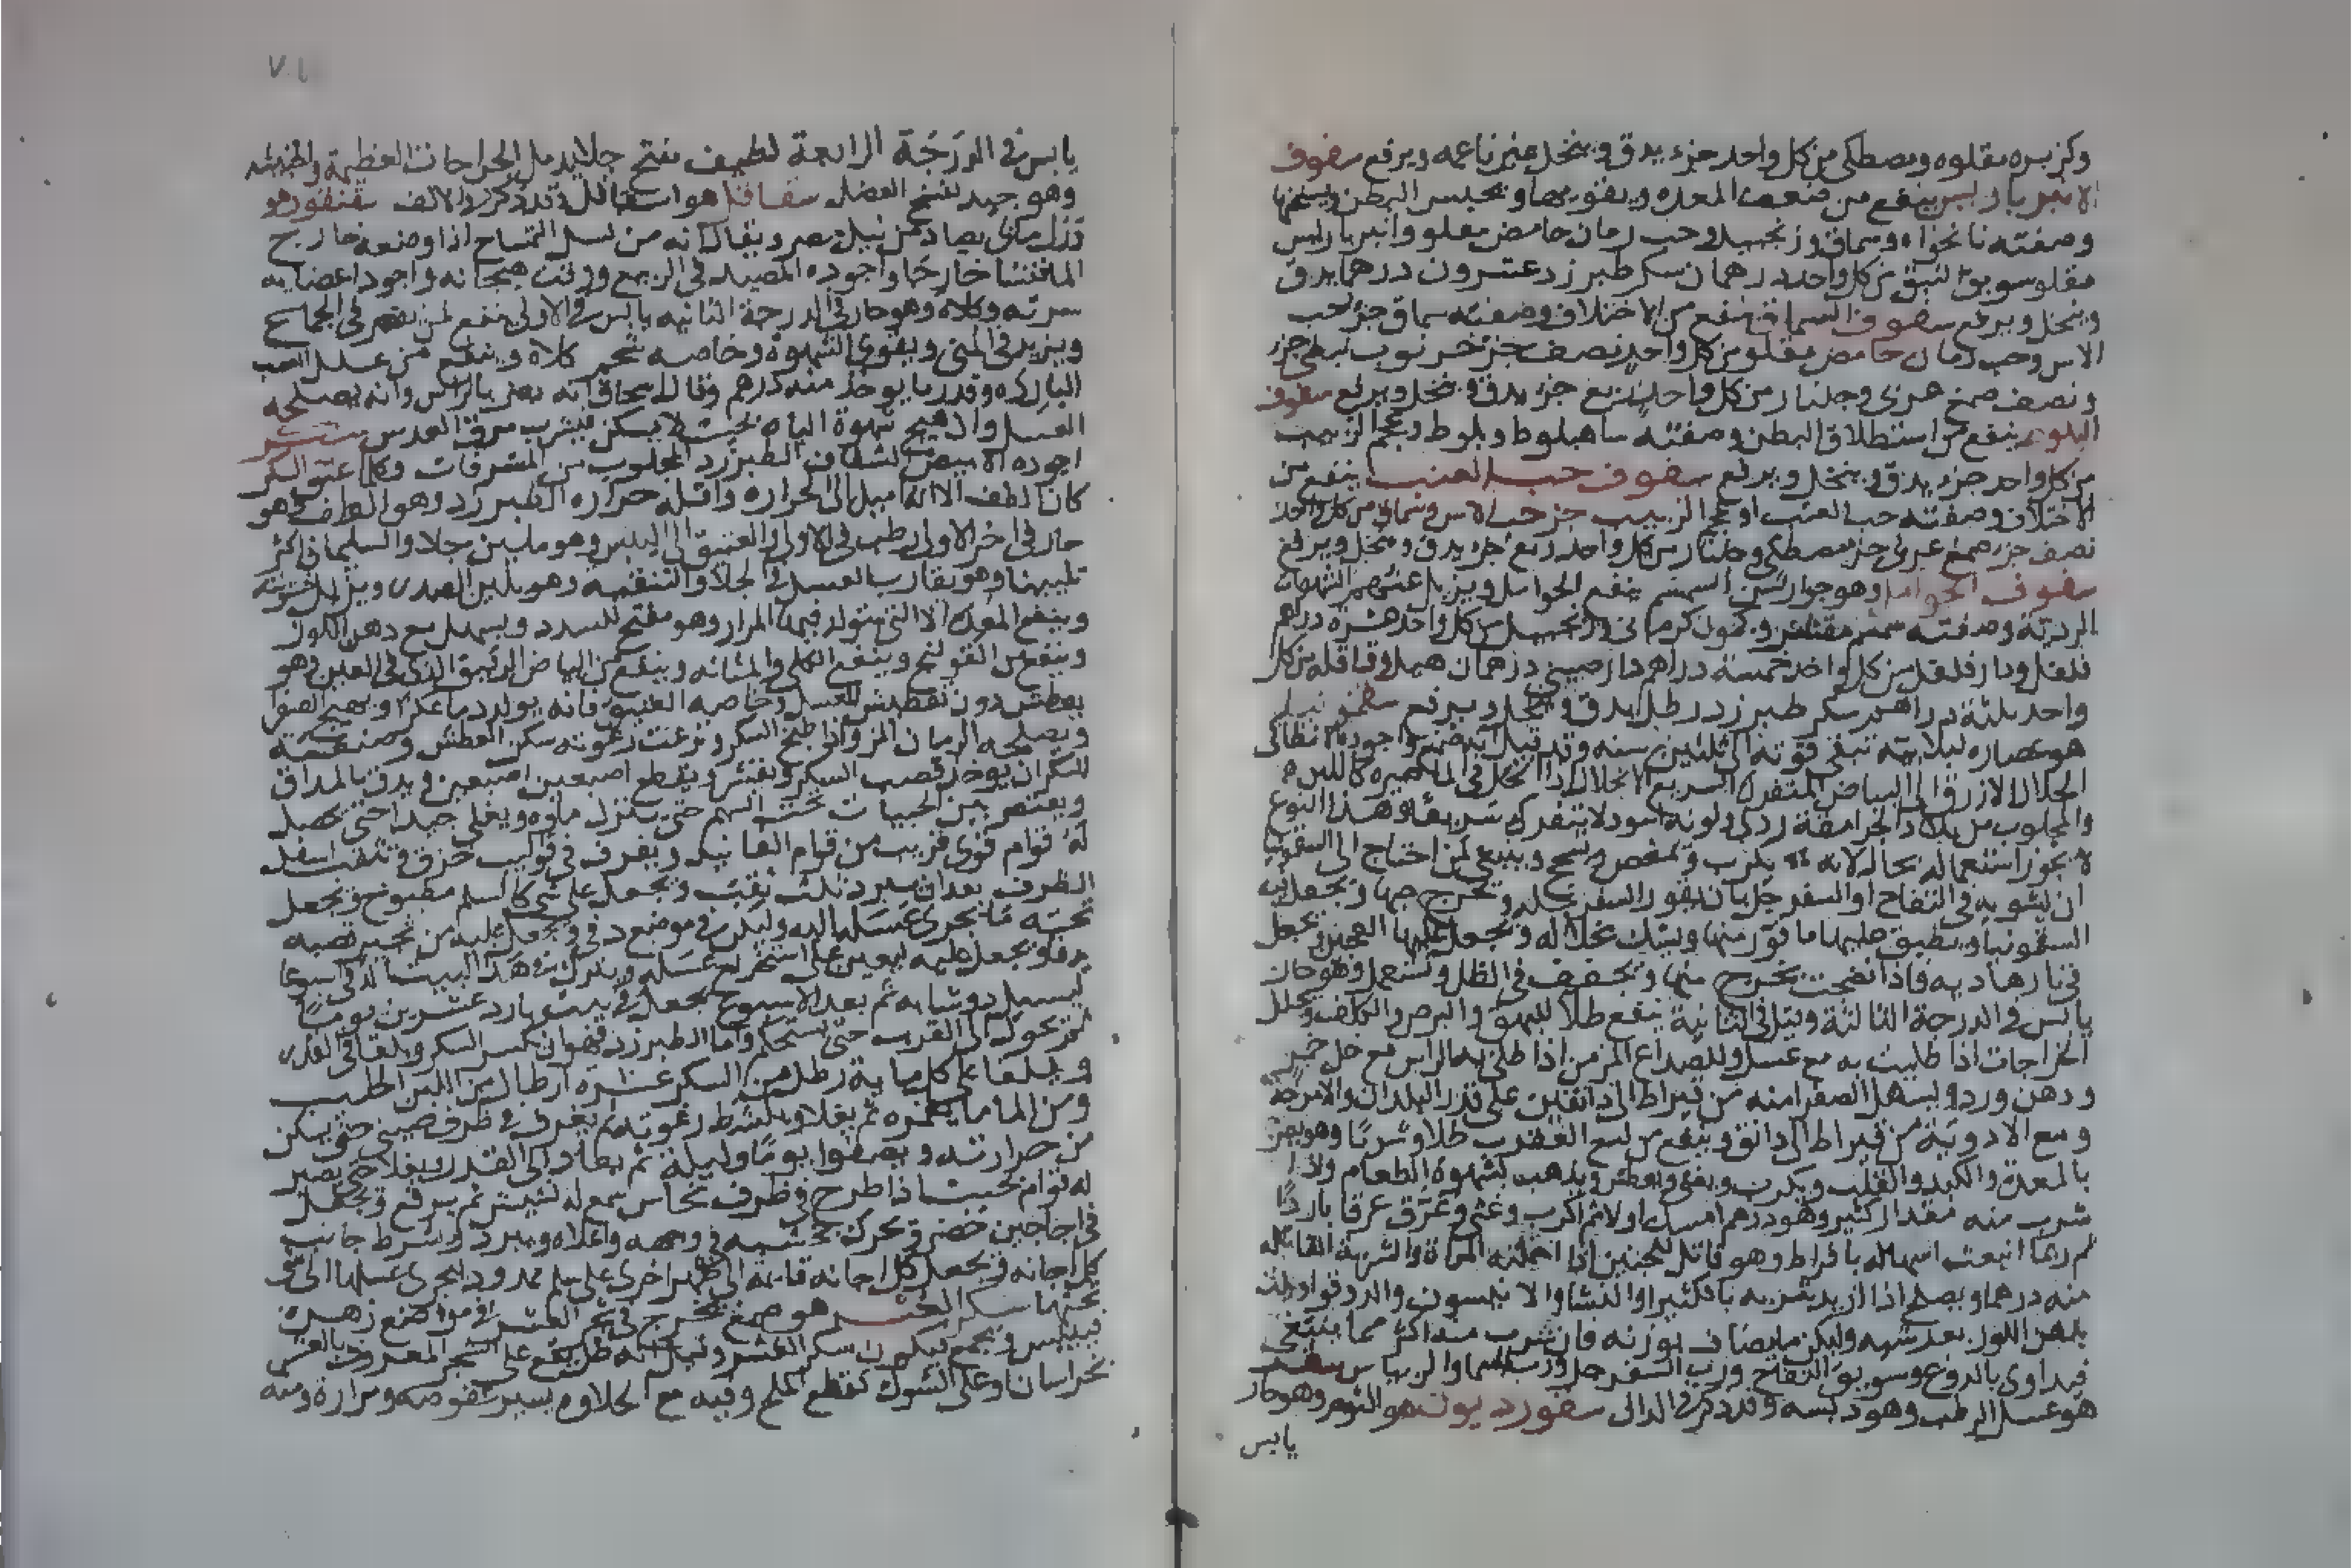 وكزبره مقلوه ومصطكى من كل واحد جزء يدق وينخل غير ناعمه ويرفع سفوف
الانبرباريس ينفع من ضعف المعده ويقويها ويحبس البطن
وصفته نانخواه وسماق وزنجبيل وحب رمان حامض مقلو وانبرباريس
مقلو سويق النبق من كل واحد درهمان سكر طبرزد عشرون درهما يدق
وينخل ويرفع سفوف السماق ينفع من الاختلاف وصفته سماق جزء حب
الاس وحب رمان حامض مقلو من كل واحد نصف جزء خرنوب نبطي جزء
ونصف صمغ عربي وجلنار من كل واحد ربع جزء يدق وينخل ويرفع سفوف
البلوط ينفع من استطلاق البطن وصفته ساهبلوط وبلوط وعجم الزبيب
من كل واحد جزء يدق وينخل ويرفع سفوف حب العنب ينفع من
الاختلاف وصفته حب العنب او عجم الزبيب جزء حب الاس وسماق من كل واحد
نصف جزء صمغ عربي جزء مصطكى وجلنار من كل واحد ربع جزء يدق وينخل ويرفع
سفوف الحوامل وهو جوارشن السمسم ينفع الحوامل ويزيل عنهم الشهوات
الرديّة وصفته سمسم مقشر وكمون كرماني وزنجبيل من كل واحد عشرة دراهم
فلفل ودار فلفل من كل واحد خمسة دراهم دارصيني درهمان هيل وقاقله من كل
واحد ثلثة دراهم سكر طبرزد رطل يدق وينخل ويرفع سقمونيا
هو عصاره لبلابيه تبقى قوته الى ثلثين سنه وقد قيل انه صمغ واجوده الانطاكي
الازرق الى البياض المتفرك السريع الانحلال اذا انحل في الما صيره كاللبن
والمجلوب من بلاد الجرامقة ردى ولونه اسود لا يتفرك سريعا وهذا النوع
لا يجوز استعماله بحال لانه يكرب ويمغص ويسحج وينبغي لمن احتاج الى السقمونيا
ان يشويه في التفاح او السفرجل بان يقور السفرجله ويخرج حبها ويجعل فيه
السقمونيا ويطبق عليها ما قوّر منها ويشك بخلاله ويجعل عليها العجين ويجعل
في نار هاديه فاذا نضجت تخرج منها ويجفف في الظل ويستعمل وهو حار
يابس في الدرجة الثالثة وقيل في الثانية ينفع طلا للبهق والبرص والكلف ويحلل
الخراجات اذا طليت به مع عسل وللصداع المزمن اذا طلى به الراس مع خل خمر
ودهن ورد ويسهل الصفرا منه من قيراط الى دانقين على قدر البلدان والامزجة
ومع الادوية من قيراط الى دانق وينفع من لسع العقرب طلاء وشربا وهو يضر
بالمعدة والكبد والقلب ويكرب ويغثى ويعطش ويذهب بشهوة الطعام واذا
شرب منه مقدار كثير وهو درهم امسك اولا ثم اكرب وغثى وعرّق عرقا باردا
ثم ربما انبعث اسهاله بافراط وهو قاتل للجنين اذا احتملته المراة والشربة القاتله
منه درهما ويصلح اذا اريد شربه بالكثيرا والنشا والانيسون والدوقوا ولته
بدهن اللوز بعد شيه وليكن ما يضاف بوزنه فان شرب منه اكثر مما ينبغي
فيداوى بالدوغ وسويق التفاح ورب السفرجل ورب السماق والريباس سقر
هو عسل الرطب وهو دبسه وقد ذكر في الدال سقورديون هو الثوم وهو حار
يابس
يابس في الدرجة الرابعة لطيف يفتح جلا يدمل الجراحات العظيمة والخبيثه
وهو جيد لفسخ العضل سقاقل هو اشقاقل وقد ذكر في الالف سقنقور هو
ورل مائي يصاد من نيل مصر ويقال انه من نسل التمساح اذا وضعه خارج
الما فنشا خارجا واجوده المصيد في الربيع ووقت هيجانه واجود اعضايه
سرته وكلاه وهو حار في الدرجة الثانيه يابس في الاولى ينفع لمن يقصر في الجماع
ويزيد في المني ويقوى الشهوة وخاصه شحم كلاه وينفع من علل العصب
البارده وقدر ما يوخذ منه درهم وقال اسحاق انه يضر بالراس وانه يصلحه
العسل واذا هيج شهوة الباه بحيث لا يسكن فيشرب مرق العدس سكر
اجوده الابيض الشفاف الطبرزد المجلوب من المشرقات وكلما عتق السكر
كان الطف الا انه اميل الى الحراره واقله حراره الطبرزد وهو الطف وهو
حار في اخر الاولى رطب في الاولى والعتيق الى اليبس وهو ملين جلا والسليماني اكثر
تليينا وهو يقارب العسل في الجلا والتنقيه وهو يلين الصدر ويزيل خشونته
وينفع المعده الا التي يتولد فيها المرار وهو مفتح للسدد ويسهل مع دهن اللوز
وينفع من القولنج وينفع الكلى والمثانه وينفع من البياض الرقيق الذي في العين وهو
يعطش دون تعطيش العسل وخاصه العتيق فانه يولد دما عكرا ويهيج الصفرا
ويصلحه الرمان المز واذا طبخ السكر ونزعت رغوته سكن العطش وصنعة
للسكر ان يوخذ قصب السكر ويقشر ويقطع اصبعين اصبعين ويدق بالمداق
ويعتصر بين الحبيات تحت السهم حتى ينزل ماوه ويغلى جيدا حتى يحصل
له قوام قوى قريب من قوام الفانيد ويغرف في قواليب خزف وتثقب اسفل
الظرف بعد ان يبرد ثلث ثقب ويجعل على شي كالسلم مطبوخ ويجعل
تحته ما يجرى عسلها اليه وليكن في موضع دفي ويجعل عليه من تحير قصبه
يدقا ويجعل عليه ليعين على استخراج عسله ويترك في هذا البيت الدفي اسبوعا
ليسيل دوشابه ثم بعد الاسبوع يجعل في بيت بارد عشرين يوما
ثم يحول الى القرب حتى يستحكم واما الطبرزد فهو ان يكسر السكر ويلقا في القدر
ويلقا على كل ماية رطل من السكر عشرة ارطال من اللبن الحليب
ومن الما ما يغمره ثم يغلا ويكشط رغوته ثم يغرف في ظرف صيني حتى يسكن
من حرارته ويصفوا يوما وليلة ثم يعاد الى القدر ويغلا حتى يصير
له قوام بحيث اذا طرح في ظرف نحاس سمع له نشيش ثم يرفع ويجعل
في اجاجين خضر ويحرك بخشبه في وسطه واعلاه ويبرد ويشرط جانب
كل اجانه ويجعل كل اجانه قايمة الى ظهر اخرى على سلم ممدود ليجرى عسلها الى شي
تحتها سكر العشر هو صمغ يخرج في شجر العشر في مواضع زهره
فييبس ويجمع فيكون سكر العشر وقيل انه طل يقع على الشجر المعروف بالعشر
بخراسان وعلى الشوك كقطع الملح وفيه مع الحلاوه يسير عفوصه ومرارة ومنه